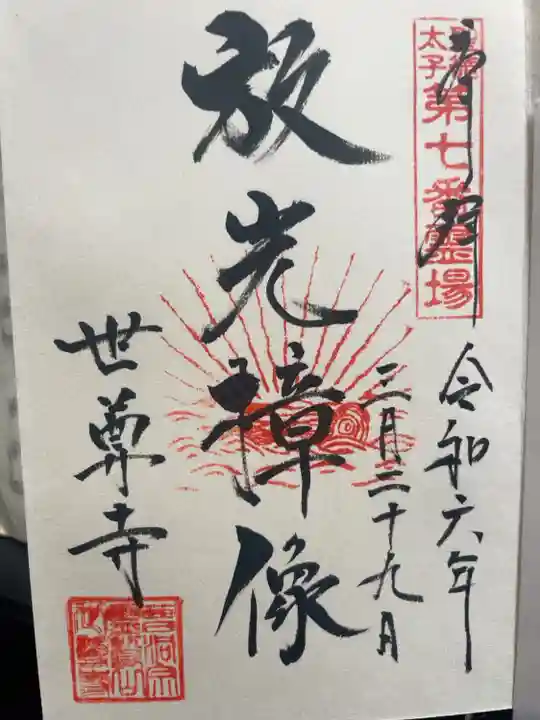 奉拝
聖徳太子
第七番霊場
令和六年
三月二十九日
放光樟像
世尊寺